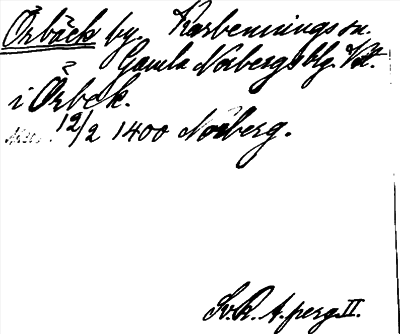 Örbäck by. Karbennings sn.
Gamla Norbergs blg. Vstm.
i Ørbek.
12/2 1400 Norberg.
Sv. R. A. perg. II.